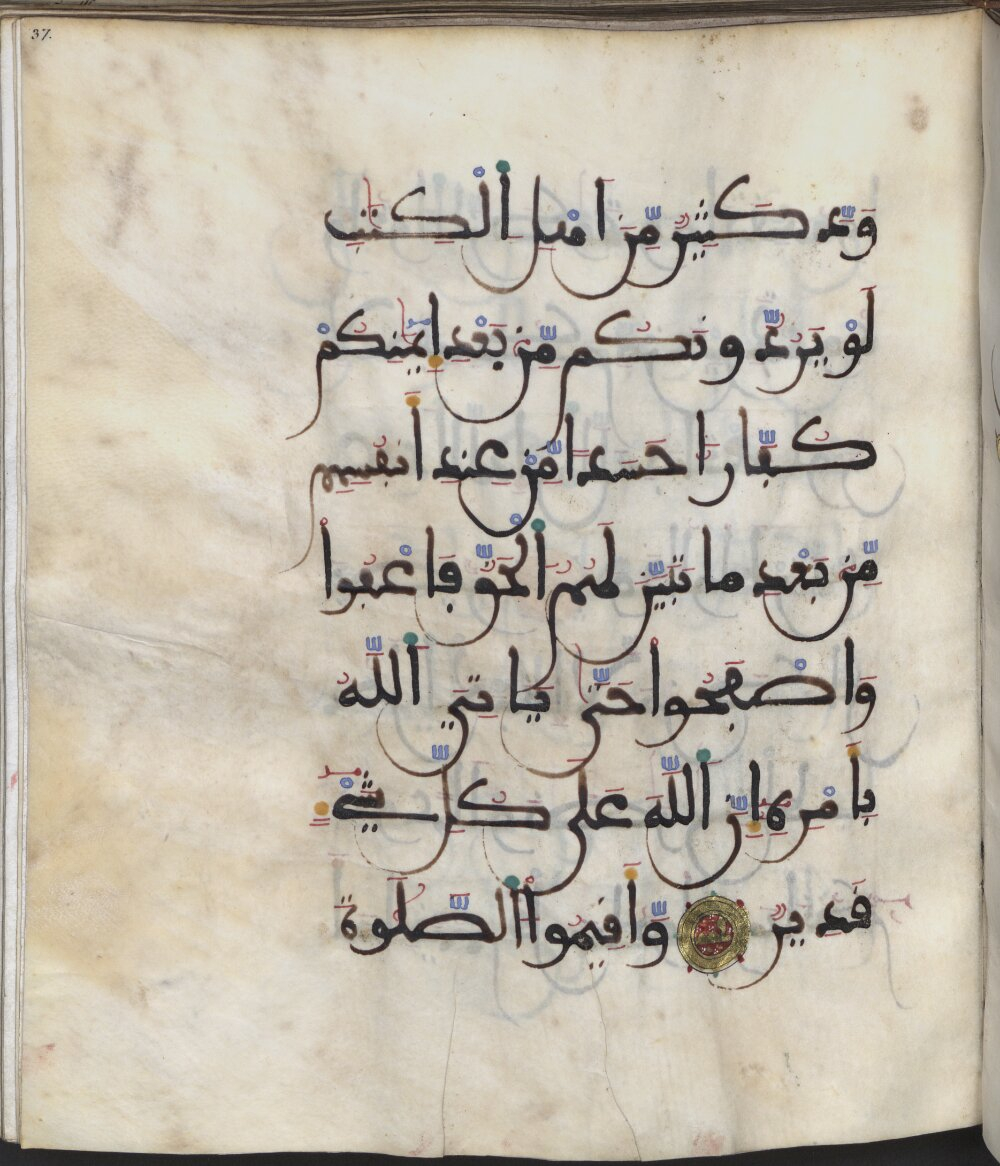 37.
وَدَّ كَثِيرٌ مِّنَ اَهْلِ اِ۬لْكِتَٰبِ
لَوْ يَرُدُّونَكُم مِّنۢ بَعْدِ إِيمَٰنِكُمْ
كُفَّاراً حَسَداً مِّنْ عِندِ أَنفُسِهِم
مِّنۢ بَعْدِ مَا تَبَيَّنَ لَهُمُ اُ۬لْحَقُّ فَاعْفُوا
وَاصْفَحُوا حَتَّىٰ يَاتِيَ اَ۬للَّهُ
بِأَمْرِهِ إِنَّ اَ۬للَّهَ عَلَىٰ كُلِّ شَيْءٍ
قَدِيرٌ وَّأَقِيمُوا اُ۬لصَّلَوٰةَ